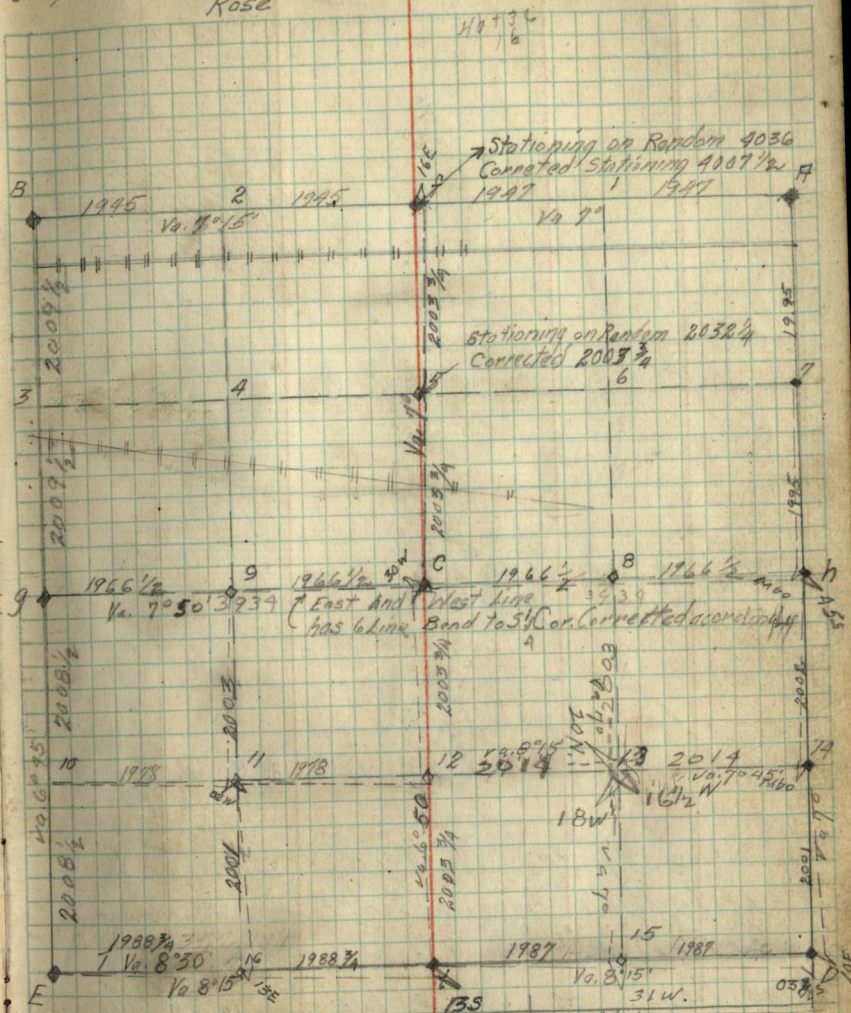 Rose
Stationing on Random 4036
Correted Stationing 4007 1/2
16E
B 1945 2 1945 1947 1 1947 A
Va. 7°15' Va 7°
2009 1/2 2003 3/4 1995
Stationing on Random 2032 1/4
Corrected 2003 3/4
3 4 5 6 7
Va. 7°
2009 1/2 2003 3/4 1995
9 1966 1/2 9 1966 1/2 C 1966 1/2 8 1966 1/2
Va. 7°50' 3934 East and West Line
has 6 Line Bend to S 1/4 Cor. Corrected acordingly
2008 1/2 2003 2003 3/4 2002
Va. 7°
20N.
10 1978 11 1978 12 2014 13 2014 14
Va. 8°15' Va. 7°45'
18W 16 1/2 W
Va 6°45' Va 6°50 Va 7° Va 7°
2008 1/2 2001 2003 3/4 2001
1988 3/4 16 1988 3/4 1987 15 1987
1 Va. 8°30' Va 8°15' 13E Va. 8°15'
E 13S 31W. D 10E